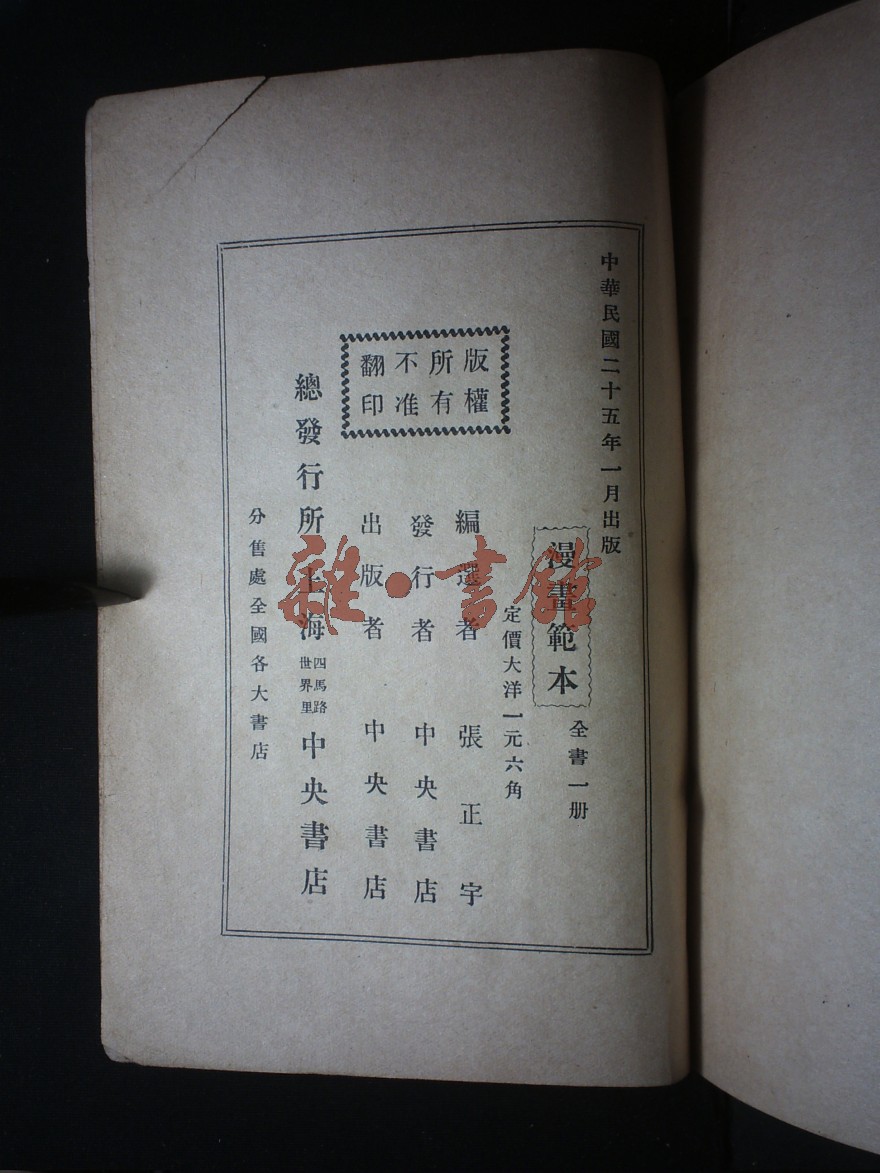 中華民國二十五年一月出版
漫畫範本
全書一册
定價大洋一元六角
版權
所有
不准
翻印
編選者 張正宇
發行者 中央書店
出版者 中央書店
總發行所 上海 四馬路 世界里 中央書店
分售處全國各大書店
雜·書館